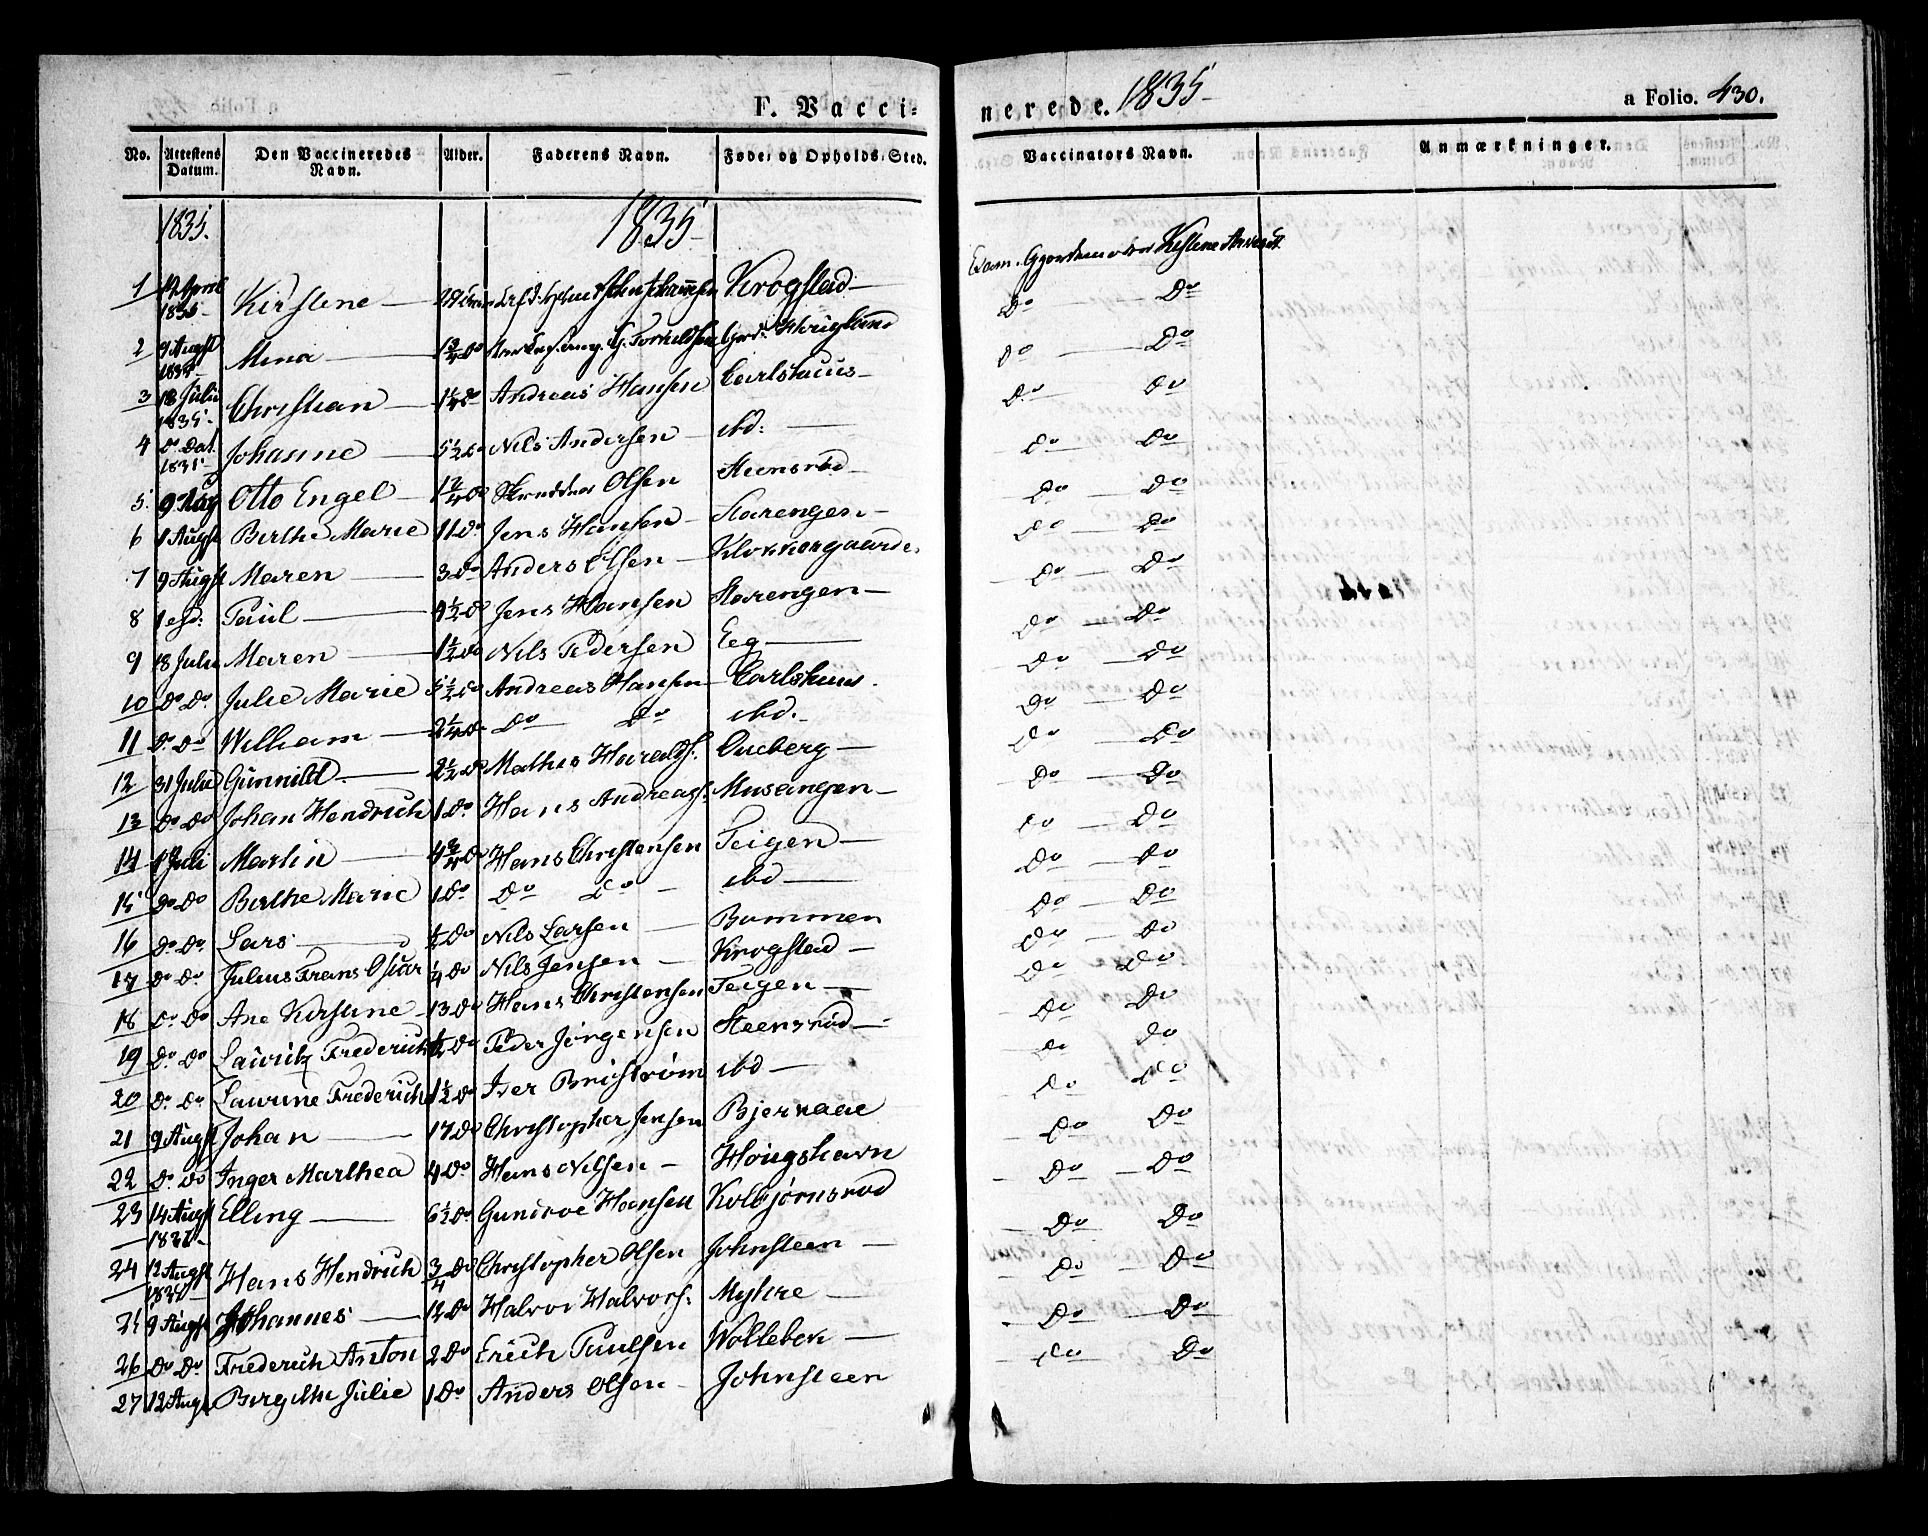 F. Vacci=
nerede. 1835
a Folio. 430.
No. Attestens Datum. Den Vaccineredes Navn. Alder. Faderens Navn. Føde= og Opholds=Sted. Vaccinators Navn. Anmærkninger.
1835. 1835
Exam. Gjordemoder Kistene
1 12 April 1835 Kirstine Krogstad Do Do
2 9 Augst Mina 1 3/4 Do Do Do
3 18 Julii 1835 Christian 1 1/4 Do Andreas Hansen Carlshuus Do Do
4 Do Dat. 1835 Johanne 5 1/2 Do Nils Andersen ibd: Do Do
5. 9 Aug Otto Engel Olsen Steensrød Do Do
6 1 Augst Berthe Marie 11 Do Jens Hansen Starengen Do Do
7 9 Augst Maren 3 Do Anders Olsen Klokkergaarde Do Do
8 1 esd: Paul 9 1/2 Do Jens Hansen Starengen Do Do
9 18 Julii Maren 1 1/2 Do Nils Pedersen Eeg Do Do
10 Do Do. Julie Marie 5 1/2 Do Andreas Hansen Carlshuus. Do Do
11 Do Do William 2 1/4 Do Do Do ibd. Do Do
12 31 Julii Gunnild 2 1/2 Do Mathis Haralds: Oueberg Do Do
13 Do Do Johan Hendrich 1 Do. Hans Andreas: Musangen Do Do
14 1 Juli Martin 4 3/4 Do Hans Christensen Teigen Do Do
15 Do Do Berthe Marie 1 Do Do Do ibd Do Do
16 Do Do. Lars 1/2 Do Nils Larsen Bommen Do Do
17 Do Do. Julius Frans Oscar 1/4 Do Nils Jensen Krogstad Do Do
18 Do Do Ane Kirstine 13 Do Hans Christensen Teigen Do Do
19 Do. Do Lauritz Frederich 1/2 Do Peder Jørgensen Steensrød Do Do
20 Do. Do Laurine Frederiche 1 1/2 Do Iver Brichstrøm ibd Do Do
21 9 Augst Johan 17 Do Christopher Jensen Bjernaae Do Do
22 Do. Do Inger Marthea 4 Do Hans Nilsen Houigshavn Do Do
23 14 Augst Elling 6 1/2 Do Gundroe Hansen Kolbjørnsrød Do Do
24 12 Augst Hans Hendrich 3/4 Do Christopher Olsen Johnsteen Do Do
25 9 Augst Johannes 12 Do Halvor Halvors: Myhre Do Do
26 Do Do. Frederich Anton 2 Do Erich Paulsen Wolleben Do Do
27 12 Augst Birgithe Julie 1 Do Anders Olsen Johnsteen